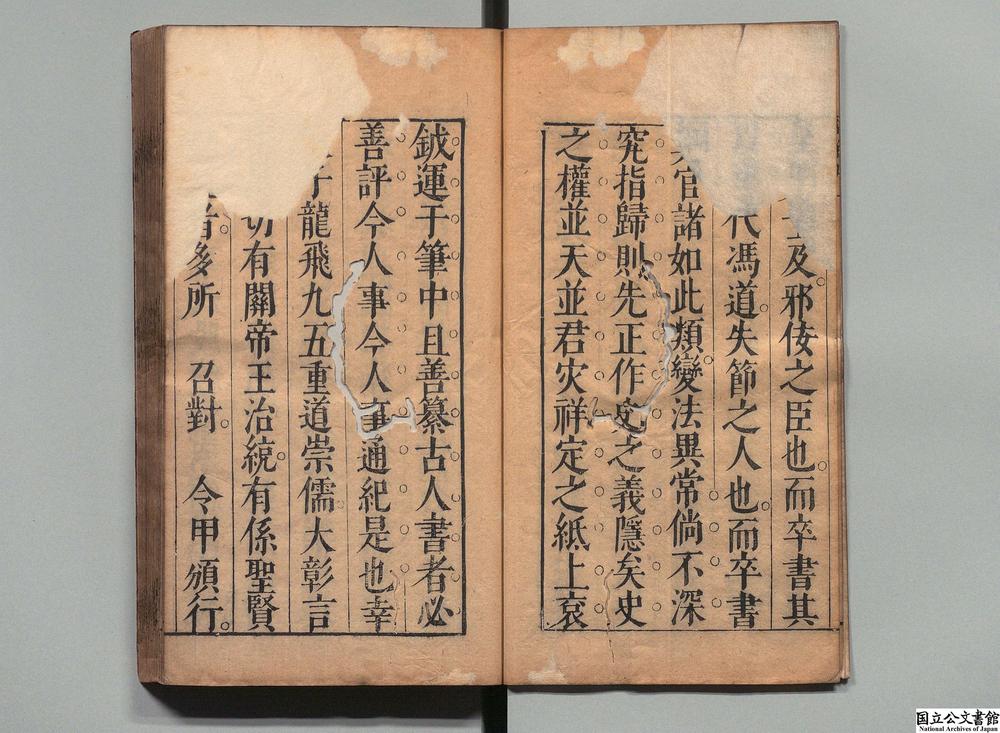 及邪佞之臣也而卒書其
代馮道失節之人也而卒書
官諸如此類變法異常倘不深
究指歸則先正作史之義隱矣史
之權並天並君灾祥定之紙上袞
鉞運于筆中且善纂古人書者必
善評今人事今人事通紀是也幸
子龍飛九五重道崇儒大彰言
切有關帝王治統有係聖賢
者多所 召對 令甲頒行
国立公文書館
National Archives of Japan